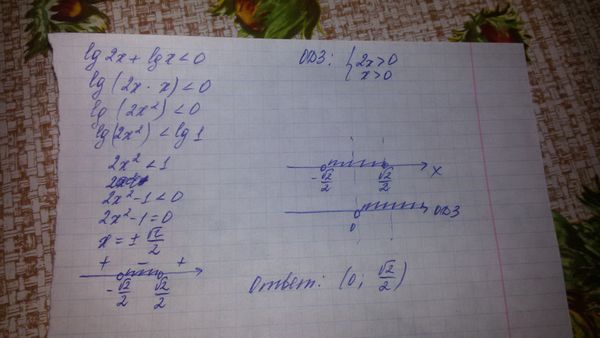 lg2x + lgx < 0
lg(2x · x) < 0
lg(2x²) < 0
lg(2x²) < lg1
2x² < 1
2x²-1 < 0
2x²-1 = 0
x = ± √2/2
+ − +
-√2/2 √2/2
ОДЗ: { 2x > 0
x > 0
-√2/2 √2/2 x
0 ОДЗ
Ответ: (0; √2/2)